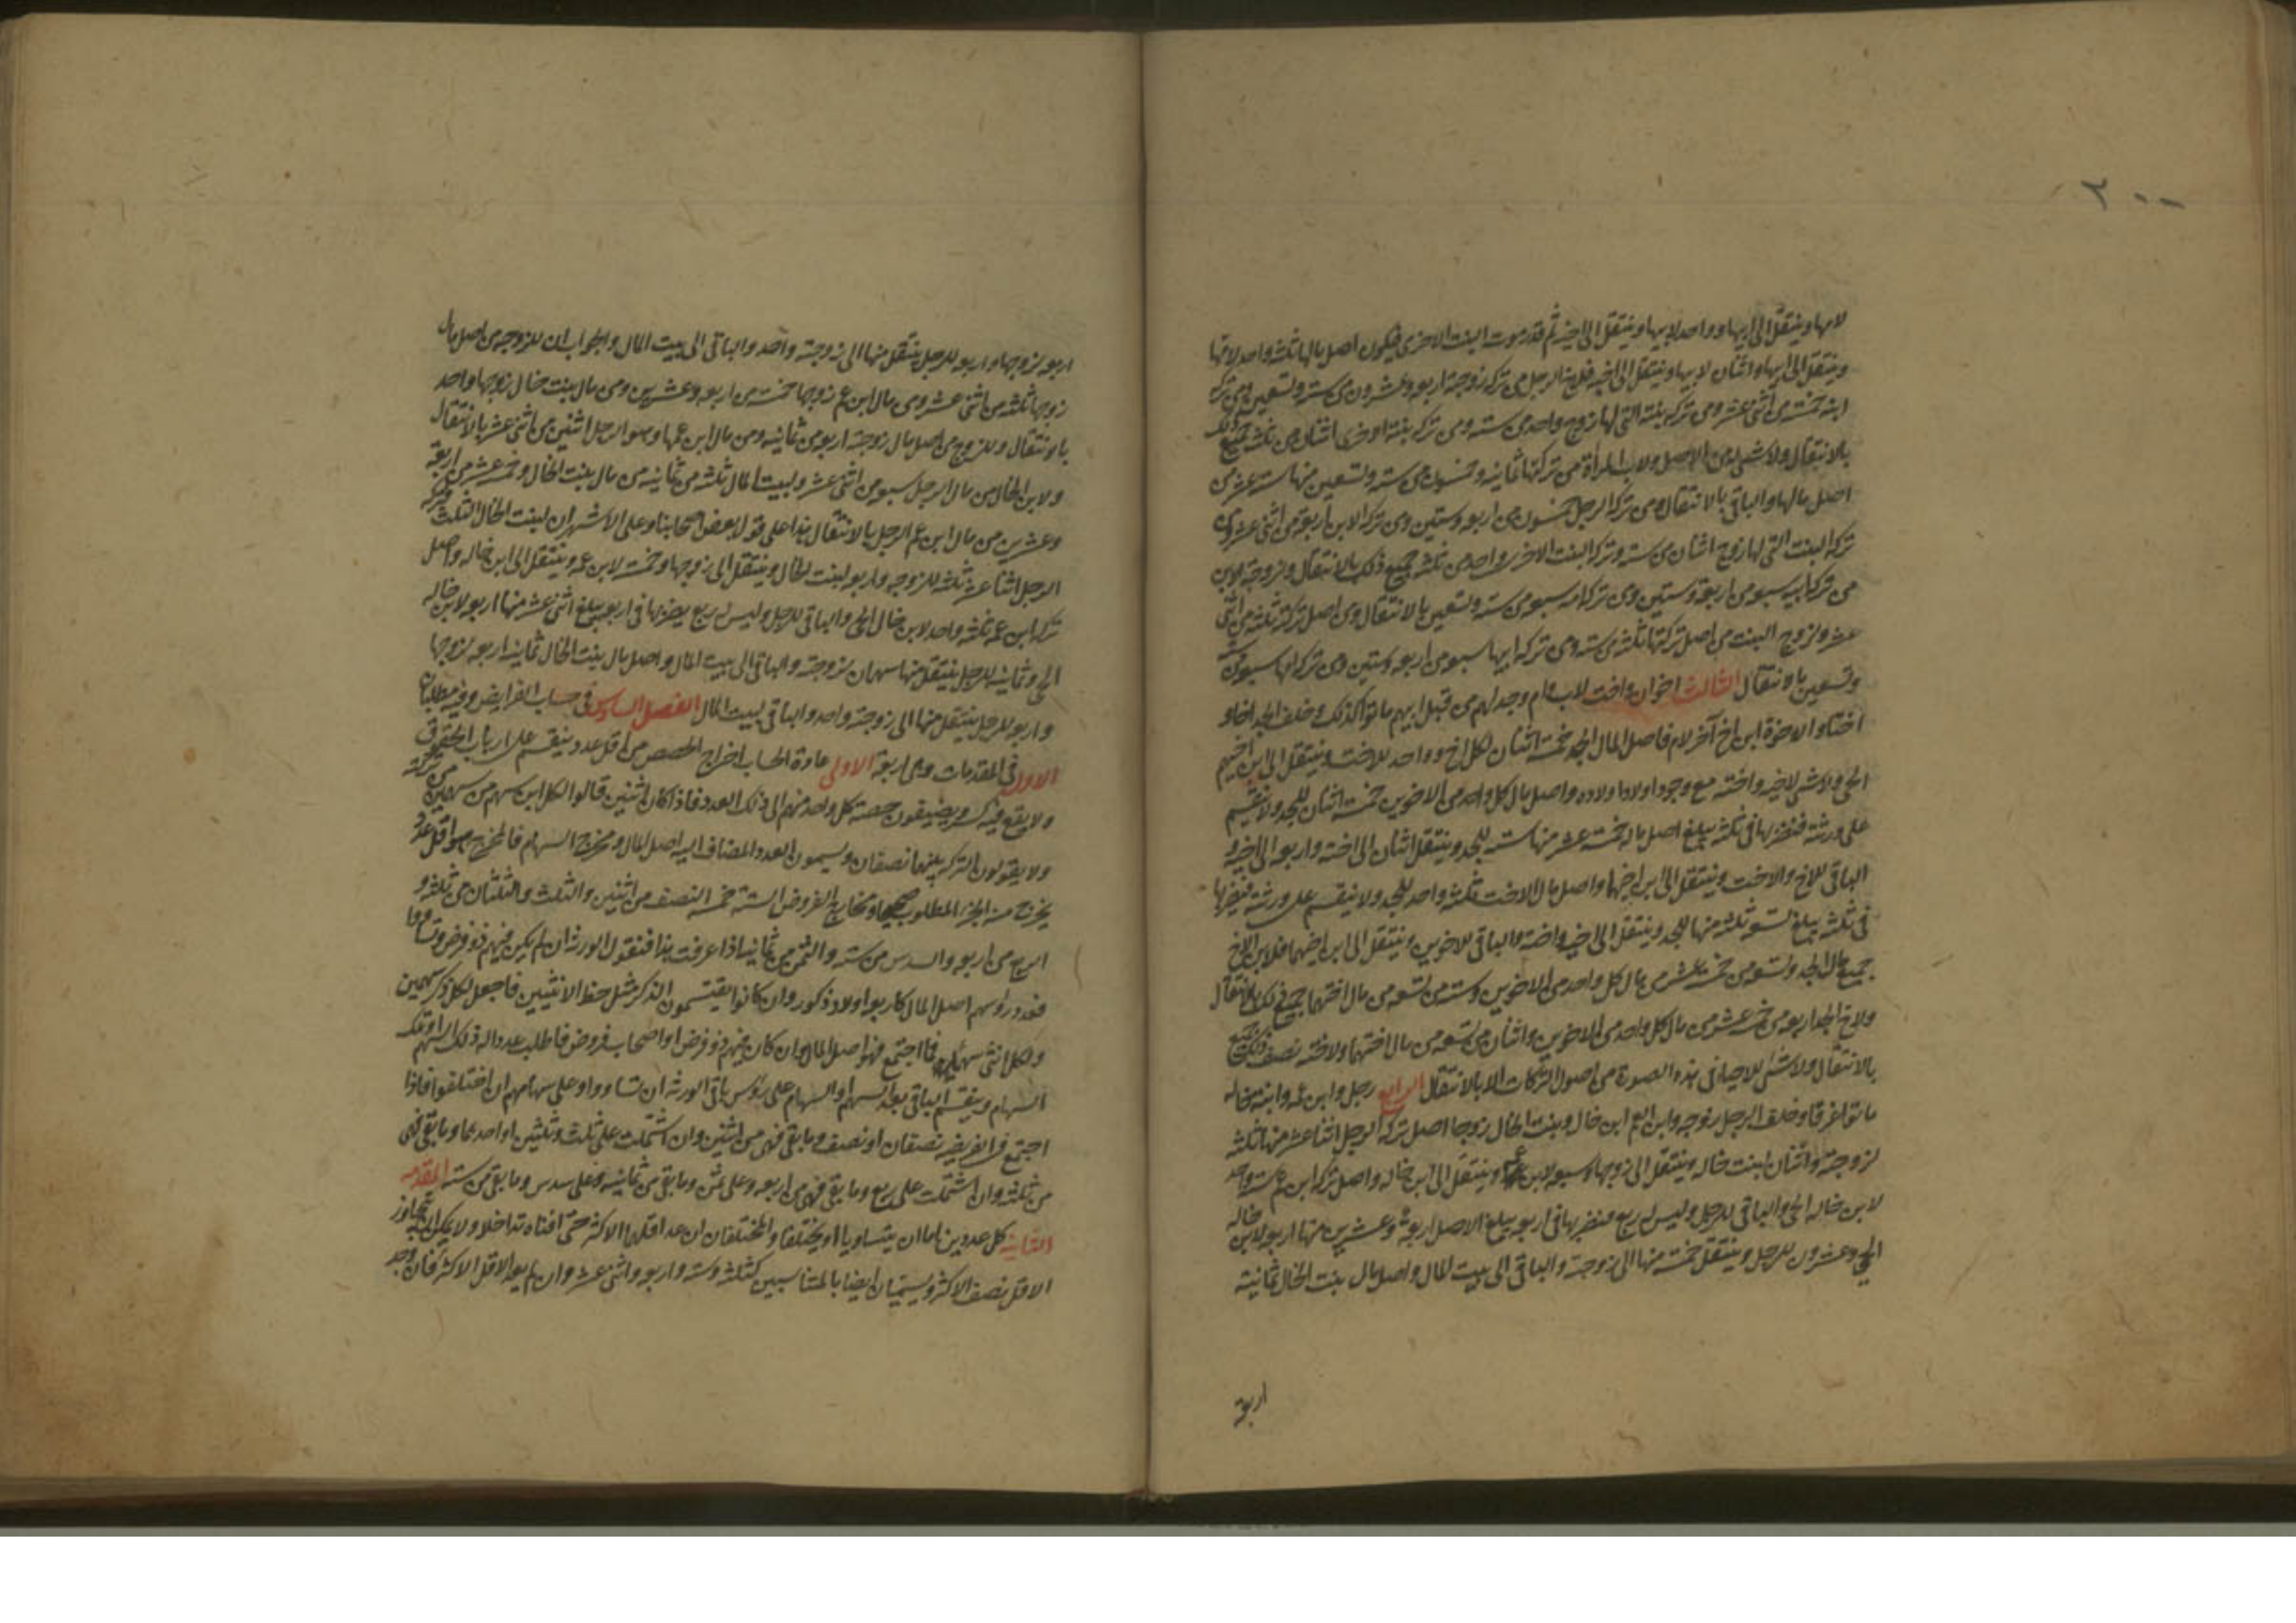 لامها وينتقل الى ابيها وواحد لابيها وينتقل الى اخيه ثم قدر موت البنت الاخرى فيكون اصل مالها ثلثة واحد لامها
وينتقل الى ابيها واثنان لابيها وينتقل الى اخيه فلاخ الرجل من تركة زوجة اربعة وعشرون من ستة وتسعين ومن تركة
ابنه خمسة من اثنى عشر ومن تركة بنته التي لها زوج واحد من ستة ومن تركة بنته الاخرى اثنان من ثلثة جميع ذلك
بالانتقال ولا شيء له من الاصل ولاب المرأة من تركتها ثمانية وخمسون من ستة وتسعين منها ستة عشر من
اصل مالها والباقي بالانتقال ومن تركة الرجل خمسون من اربعة وستين ومن تركة الابن اربعة من اثنى عشر ومن
تركة البنت التي لها زوج اثنان من ستة وتركة البنت الاخرى واحد من ثلثة جميع ذلك بالانتقال ولزوجة الابن
من تركة ابيه سبعة من اربعة وستين ومن تركة امه سبعة من ستة وتسعين بالانتقال ومن اصل تركته ثلثة من اثنى
عشر ولزوج البنت من اصل تركتها ثلثة من ستة ومن تركة ابيها سبعة من اربعة وستين ومن تركة امها سبعة من ستة
وتسعين بالانتقال الثالث اخوان واخت لاب وام وجد لهم من قبل ابيهم ماتوا كذلك وخلف الجد اخا و
اختا والاخوة ابن اخ آخر لام فاصل المال الجد خمسة اثنان لكل اخ وواحد للاخت وينتقل الى ابن اخيهم
الحي ولا شيء لاخيه واخته مع وجود اولاد اولاده واصل مال كل واحد من الاخوين خمسة اثنان للجد ولا ينقسم
على ورثته فنضربها في ثلثة يبلغ اصل ماله خمسة عشر منها ستة للجد وينتقل اثنان الى اخته واربعة الى اخيه و
الباقي للاخ والاخت وينتقل الى ابن اخيهما واصل مال الاخت ثلثة واحد للجد ولا ينقسم على ورثته فنضربها
في ثلثة يبلغ تسعة ثلثة منها للجد وينتقل الى اخيه واخته والباقي للاخوين وينتقل الى ابن اخيهما فلابن الاخ
جميع مال الجد وتسعة من خمسة عشر من مال كل واحد من الاخوين وستة من تسعة من مال اختهما جميع ذلك بالانتقال
ولاخ الجد اربعة من خمسة عشر من مال كل واحد من الاخوين واثنان من تسعة من مال اختهما ولاخته نصف ذلك
بالانتقال ولا شيء للاحياء في هذه الصورة من اصول التركات الا بالانتقال الرابع رجل وابن عمه وابنة خاله
ماتوا غرقا وخلف الرجل زوجة وابن العم ابن خال وبنت الخال زوجا اصل تركة الرجل اثنا عشر منها ثلثة
لزوجته واثنان لبنت خاله وينتقل الى زوجها وسبعة لابن عمه وينتقل الى ابن خاله واصل تركة ابن عمه ستة واحد
لابن خاله الحي والباقي للرجل وليس له ربع فنضربها في اربعة يبلغ الاصل اربعة وعشرين منها اربعة لابن خاله
الحي وعشرون للرجل وينتقل خمسة منها الى زوجته والباقي الى بيت المال واصل مال بنت الخال ثمانية
اربعة
اربعة لزوجها واربعة للرجل ينتقل منها الى زوجته واحد والباقي الى بيت المال والجواب ان للزوجة من اصل مال
زوجها ثلثة من اثنى عشر ومن مال ابن عم زوجها خمسة من اربعة وعشرين ومن مال بنت خال زوجها واحد
بالانتقال وللزوج من اصل مال زوجته اربعة من ثمانية ومن مال ابن عمها وهو الرجل اثنين من اثنى عشر بالانتقال
ولابن الخال من مال الرجل سبعة من اثنى عشر ولبيت المال ثلثة من ثمانية من مال بنت الخال وخمسة عشر من اربعة
وعشرين من مال ابن عم الرجل بالانتقال هذا على قول بعض اصحابنا وعلى الاشهر ان لبنت الخال الثلث فتركة
الرجل اثنا عشر ثلثة للزوجة واربعة لبنت الخال وينتقل الى زوجها وخمسة لابن عمه وينتقل الى ابن خاله واصل
تركة ابن عمه ثلثة واحد لابن خال الحي والباقي للرجل وليس له ربع يضربها في اربعة يبلغ اثنى عشر منها اربعة لابن خاله
الحي وثمانية للرجل ينتقل منها سهمان لزوجته والباقي الى بيت المال واصل مال بنت الخال ثمانية اربعة لزوجها
واربعة للرجل ينتقل منها الى زوجته واحد والباقي لبيت المال الفصل السادس في حساب الفرايض وفيه مطلبان
الاول في المقدمات وهي اربعة الاولى عادة الحساب اخراج الحصص من اقل عدد ينقسم على ارباب الحقوق
ولا يقع فيه كسر ويضيفون حصة كل واحد منهم الى ذلك العدد فاذا كان اثنين قالوا لكل ابن سهم من سهمين من تركته
ولا يقولون التركة بينهما نصفان ويسمون العدد المضاف اليه اصل المال ومخرج السهام فالمخرج هو اقل عدد
يخرج منه الجزء المطلوب صحيحا ومخارج الفروض الستة خمسة النصف من اثنين والثلث والثلثان من ثلثة و
الربع من اربعة والسدس من ستة والثمن من ثمانية اذا عرفت هذا فنقول الورثة ان لم يكن فيهم ذو فرض وتساووا
فعدد رؤسهم اصل المال كاربعة اولاد ذكور وان كانوا يقتسمون للذكر مثل حظ الانثيين فاجعل لكل ذكر سهمين
ولكل انثى سهما فما اجتمع فهو اصل المال وان كان فيهم ذو فرض او اصحاب فروض فاطلب عددا له ذلك السهم او تلك
السهام وينقسم الباقي بعد السهم او السهام على رؤس باقي الورثة ان تساووا او على سهامهم ان اختلفوا فاذا
اجتمع في الفريضة نصفان او نصف وما بقي فهي من اثنين وان اشتملت على ثلث وثلثين او احدهما وما بقي فهي
من ثلثة وان اشتملت على ربع وما بقي فهي من اربعة وعلى ثمن وما بقي من ثمانية وعلى سدس وما بقي من ستة المقدمة
الثانية كل عددين اما ان يتساويا او يختلفا والمختلفان ان عد اقلهما الاكثر حتى افناه تداخلا ولا يمكن ان يتجاوز
الاقل نصف الاكثر ويسميان ايضا بالمتناسبين كثلثة وستة واربعة واثنى عشر وان لم يعد الاقل الاكثر فان وجد